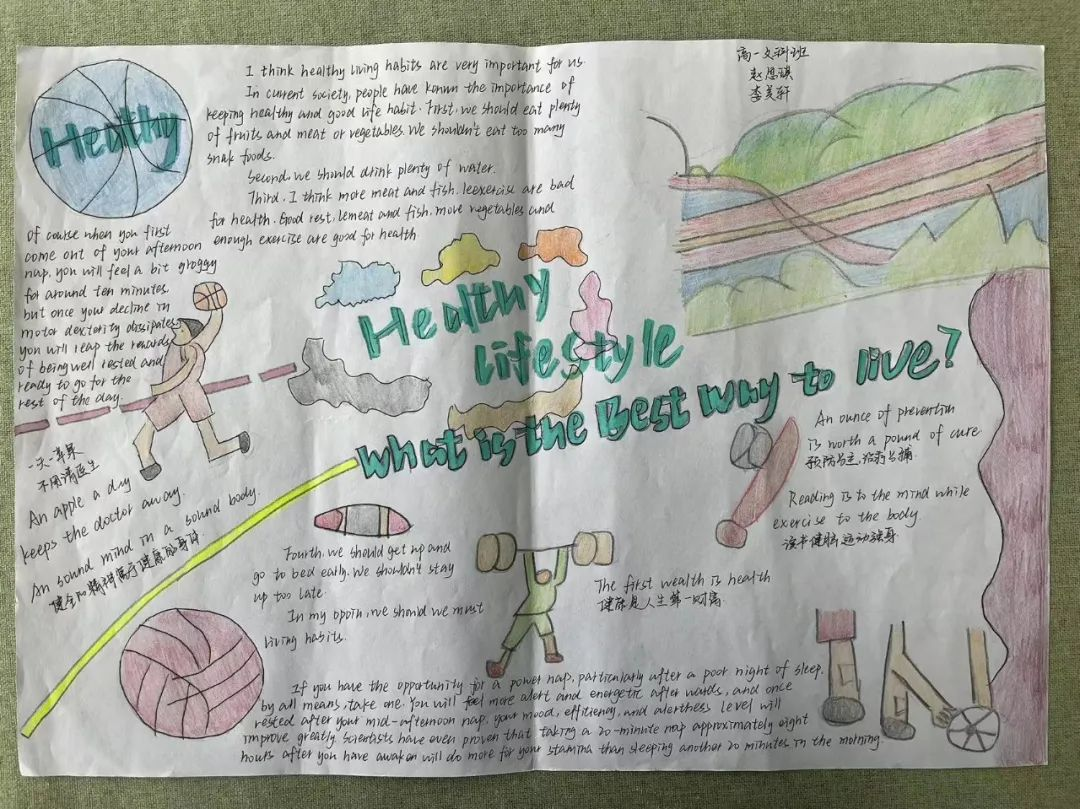 Healthy
I think healthy living habits are very important for us.
In current society, people have konwn the importance of
keeping healthy and good life habit. First, we should eat plenty
of fruits and meat or vegetables. We shouldn't eat too many
snak foods.
Second, we should drink plenty of water.
Third, I think more meat and fish. leexercise are bad
for health. Good rest, lemeat and fish, move vegetables and
enough exercise are good for health
高一文科班
赵思琪
李美轩
Of course when you first
come out of your afternoon
nap, you will feel a bit groggy
for around ten minutes.
but once your decline in
motor dexterity dissipates
you will reap the rewards
of being well rested and
ready to go for the
rest of the day.
Healthy
lifestyle
What is the Best Way to live?
一天一苹果
不用请医生
An apple a day
keeps the doctor away.
An sound mind in a sound body.
健全的精神寓于健康的身体
An ounce of prevention
is worth a pound of cure
预防为主,治疗为辅.
Reading is to the mind while
exercise to the body.
读书健脑,运动强身
Fourth, we should get up and
go to bed early. We shouldn't stay
up too late.
In my opoin, we should we must
living habits.
The first wealth is health
健康是人生第一财富.
If you have the opportunity for a power nap, particularly after a poor night of sleep,
by all means, take one. You will feel more alert and energetic after wards, and once
rested after your mid-afternoon nap, your mood, efficiency, and alertness level will
improve greatly. Scientists have even proven that taking a 20-minute nap approximately eight
hours after you have awaken will do more for your stamina than sleeping another 20 minutes in the morning.